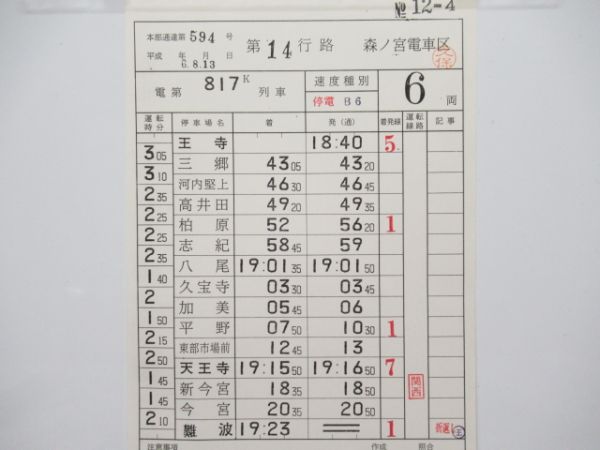 № 12-4
本部通達第594号
平成 年 月 日
6.8.13
第14行路 森ノ宮電車区
電第 817K 列車 速度種別 6両
停電 B6
運転時分 停車場名 着 発(通) 着発線 運転線路 記事
王寺 18:40 5
305 三郷 4305 4320
310 河内堅上 4630 4645
235 高井田 4920 4935
225 柏原 52 5620 1
225 志紀 5845 59
235 八尾 19:0135 19:0150
140 久宝寺 0330 0345
2 加美 0545 06
150 平野 0750 1030 1
215 東部市場前 1245 13
250 天王寺 19:1550 19:1650 7
145 新今宮 1835 1850 関西
145 今宮 2035 2050
210 難波 19:23 1 折返し
注意事項 作成 照合